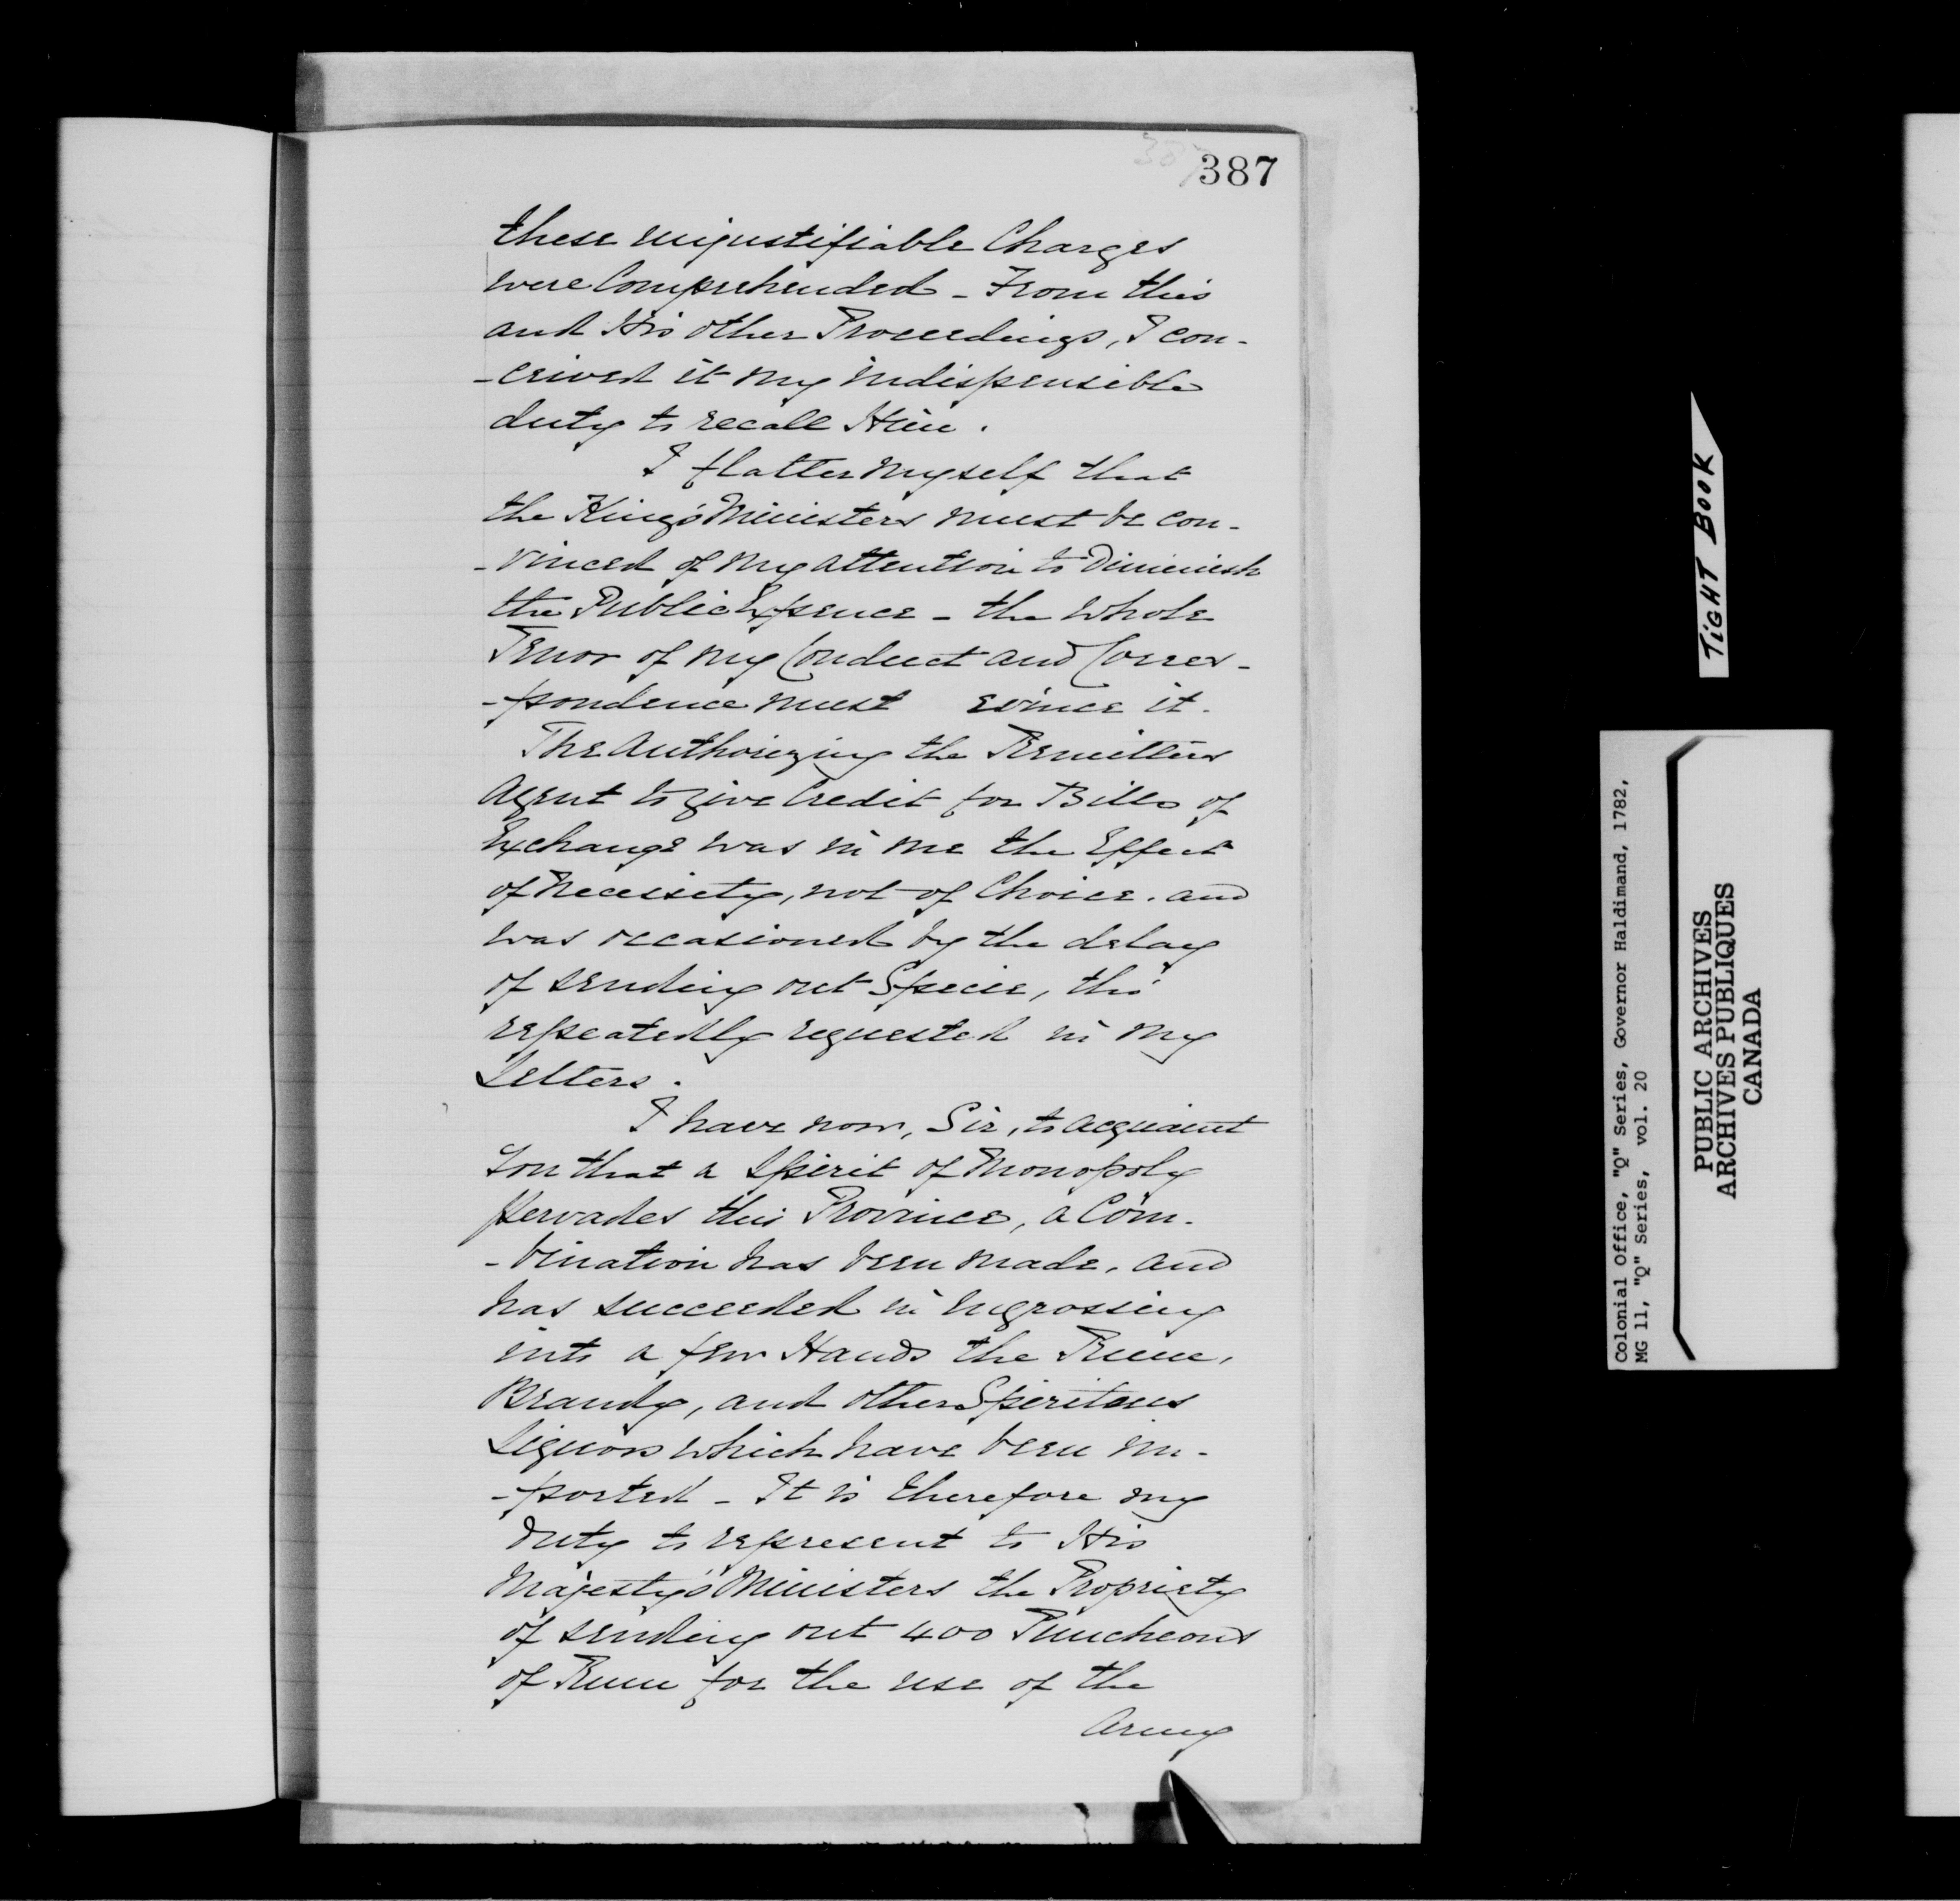 387
387
these unjustifiable Charges
were Comprehended - From this
and His other Proceedings, I con-
-ceived it my indispensible
duty to recall Him.
I flatter myself that
the King's Ministers must be con-
-vinced of my attention to Diminish
the Public Expence - the whole
Tenor of my Conduct and Corres-
-pondence must evince it.
The Authorizing the Remitters
Agent to give Credit for Bills of
Exchange was in me the Effect
of Necessity, not of Choice. and
was occasioned by the delay
of sending out Specie, tho'
repeatedly requested in my
Letters.
I have now, Sir, to acquaint
You that a Spirit of Monopoly
pervades this Province, a Com-
-bination has been made, and
has succeeded in Engrossing
into a few Hands the Rum,
Brandy, and other Spiritous
Liquors which have been im-
-ported - It is therefore my
duty to represent to His
Majesty's Ministers the Propriety
of sending out 400 Puncheons
of Rum for the use of the
Army
TIGHT BOOK
Colonial Office, "Q" Series, Governor Haldimand, 1782,
MG 11, "Q" Series, vol. 20
PUBLIC ARCHIVES
ARCHIVES PUBLIQUES
CANADA